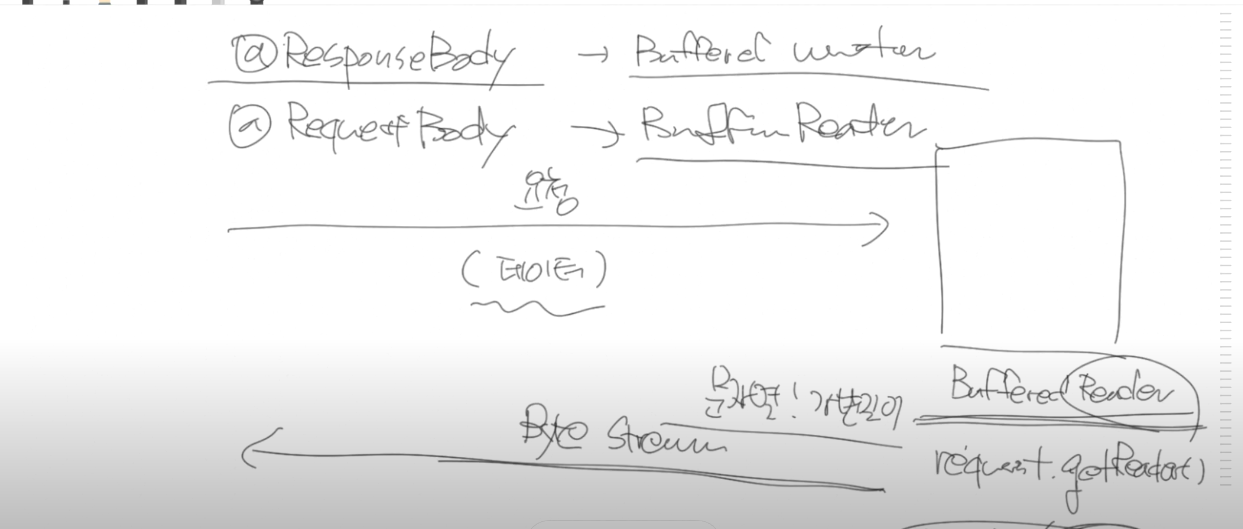 @ResponseBody → Buffered writer
@RequestBody → BufferReader
요청
(데이터)
문자열! 가변길이
Buffered Reader
Byte Stream
request.getReader()